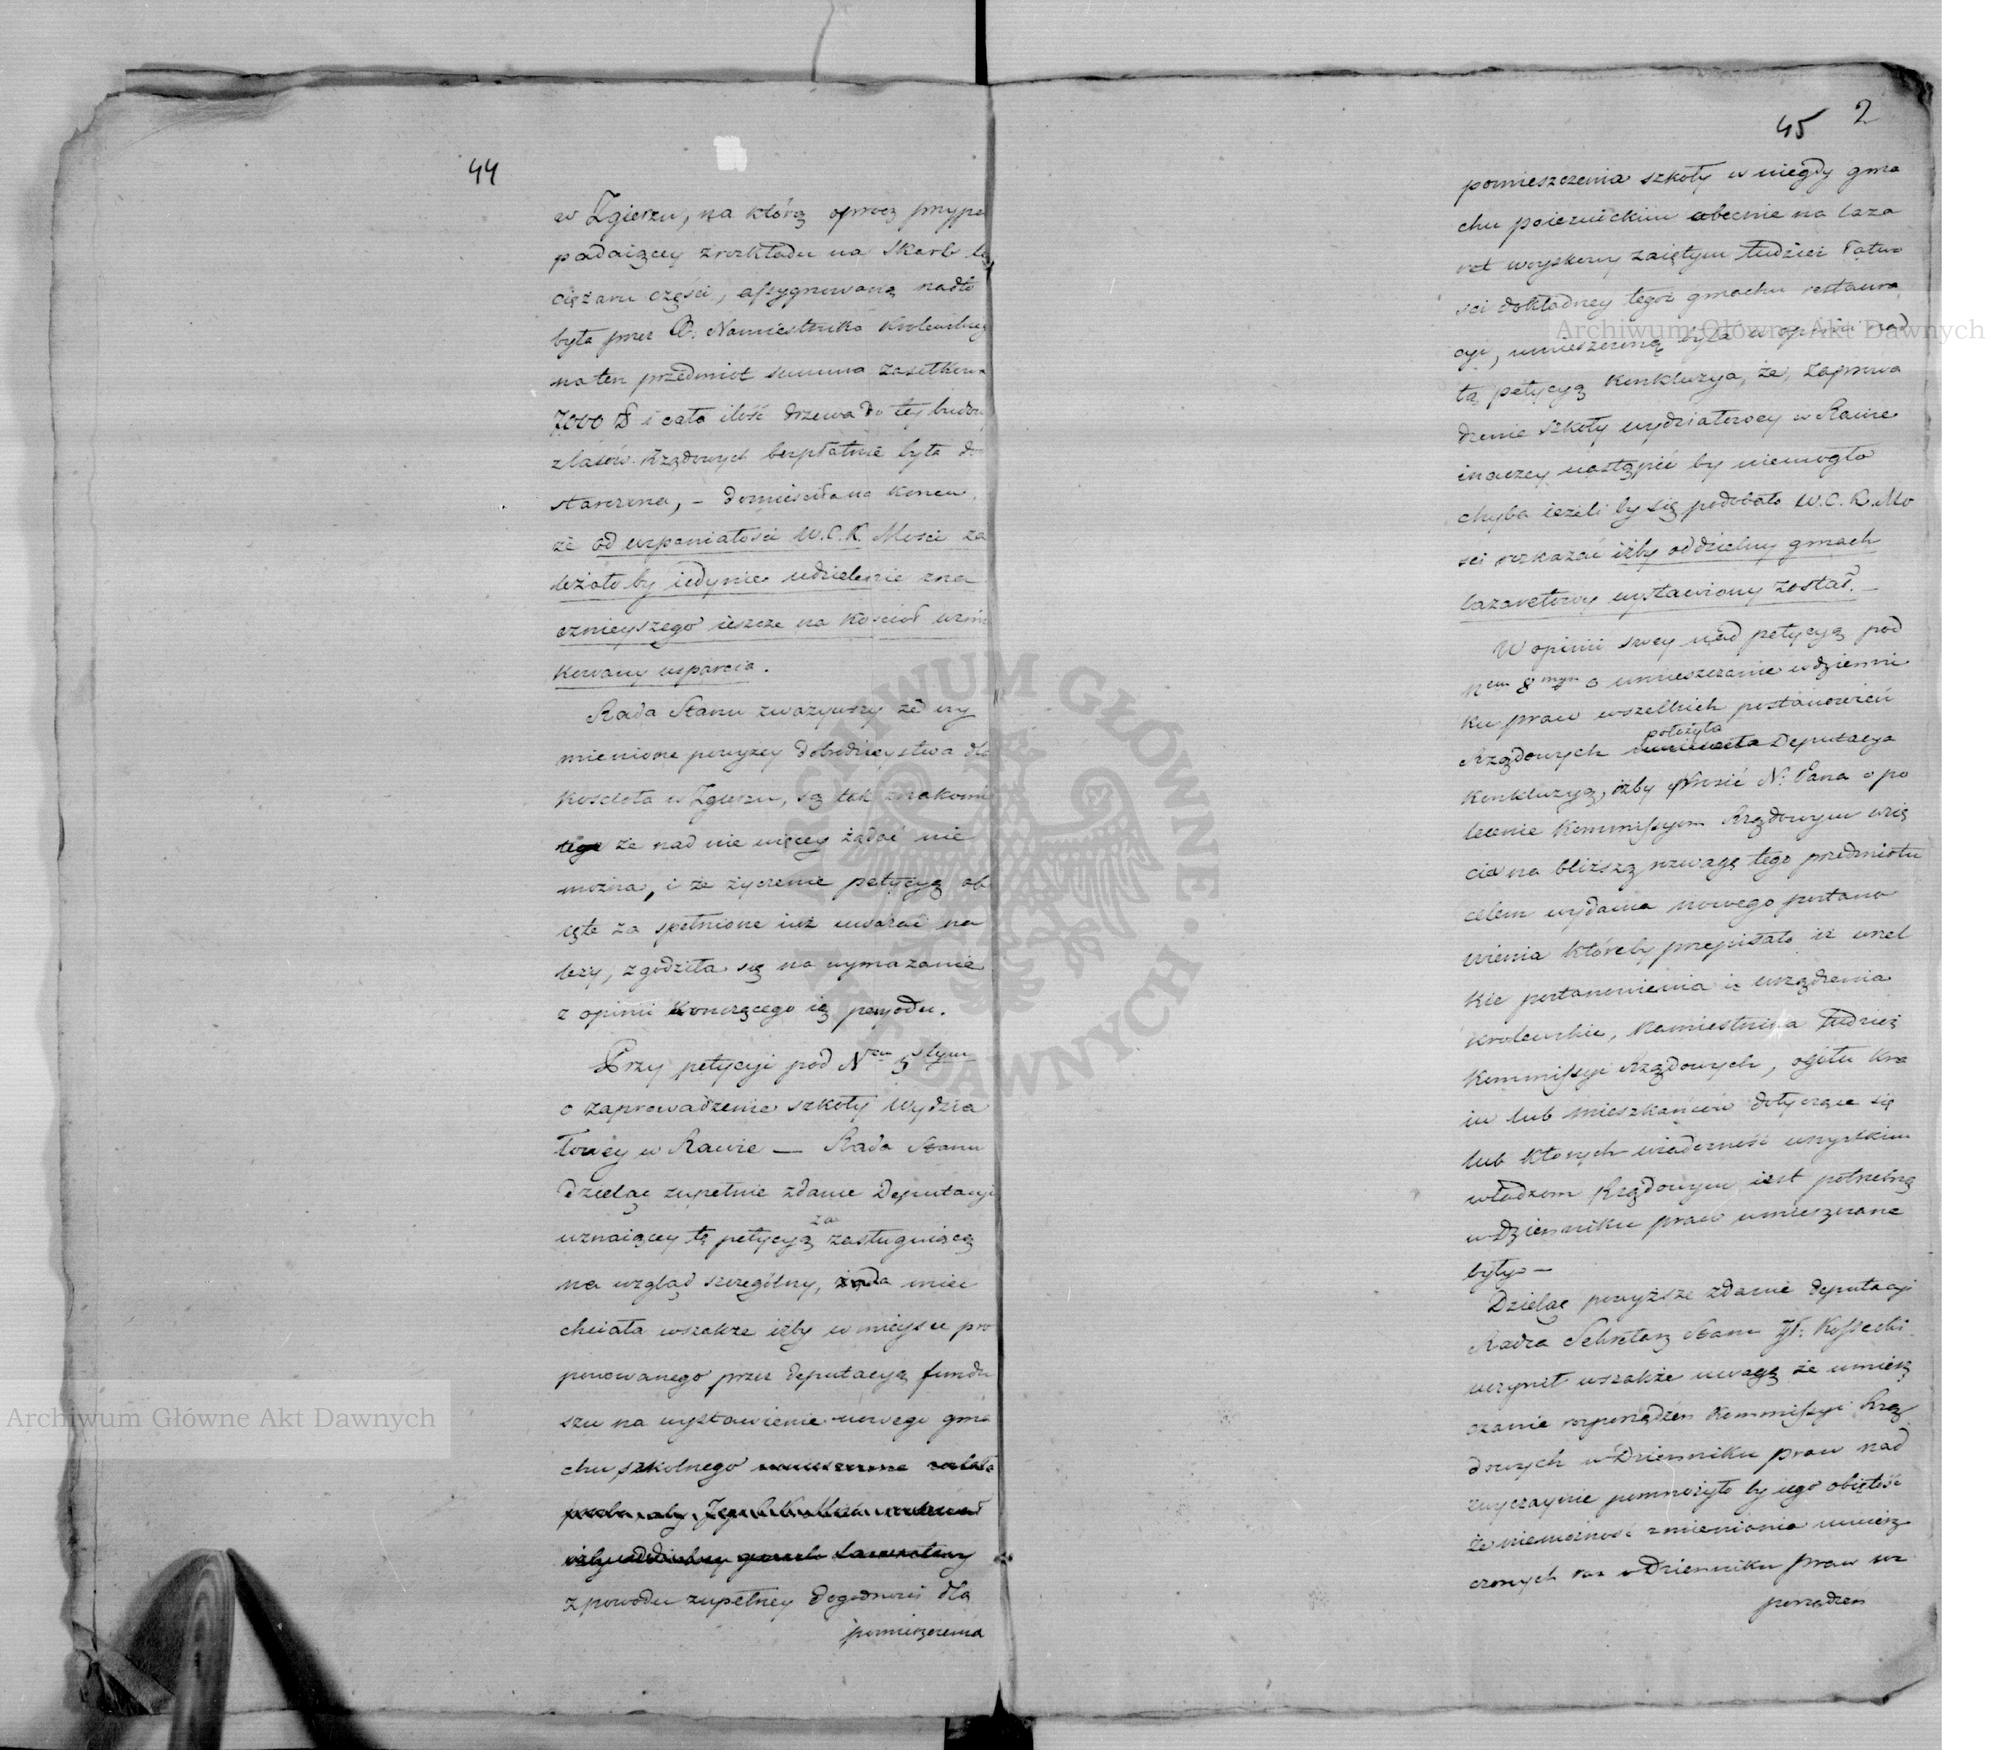 44
w Zgierzu, na którą oprocz przype
padaiącey z rozkładu na Skarb
ciężaru części, assygnowaną nadto
była przez Namiestnika Krolewskiego
na ten przedmiot summa zasiłkowa
7000 i cała ilość drzewa do tey budow
z lasów Rządowych bezpłatnie była do
starczona, – domieściła na końcu,
że od wspaniałości W. C. K. Mości za
leżało by iedynie udzielenie zna
cznieyszego ieszcze na Kościoł wzmian
kowany wsparcia.
Rada Stanu zważywszy że wy
mienione powyżey dobrodzieystwa dla
Kościoła w Zgierzu, są tak znakomi
że nad nie więcey żądać nie
można, i że życzenie petycyą ob
ięte za spełnione iuż uważać na
leży, zgodziła się na wymazanie
z opinii kończącego ią peryodu.
Przy petycyi pod Nrem 5tym
o zaprowadzenie szkoły Wydzia
łowey w Rawie — Rada Stanu
dzieląc zupełnie zdanie Deputacyi
uznaiącey tę petycyą za zasługuiącą
na wzgląd szczególny, mieć
chciała wszakże iżby w mieysce pro
ponowanego przez deputacyą fundu
szu na wystawienie nowego gma
chu szkolnego
iżby oddzielny gmach lazaretowy
z powodu zupełney dogodności dla
pomieszczenia
45 2
pomieszczenia szkoły w niegdy gma
chu poiezuickim obecnie na laza
ret woyskowy zaiętym tudzież łatwo
sci dokładney tegoż gmachu restaura
cyi, umieszczoną była w opinii nad
tą petycyą Konkluzya, że, Zaprowa
dzenie Szkoły wydziałowey w Rawie
inaczey nastąpić by niemogło
chyba ieżeli by się podobało W. C. K. Mo
ści rozkazać iżby oddzielny gmach
lazaretowy wystawiony został. —
W opinii swey nad petycyą pod
Nrem 8mym o umieszczanie w dzienni
ku praw wszelkich postanowień
położyła
Rządowych umieściła Deputacya
Konkluzyą, iżby prosić N. Pana o po
lecenie Kommissyom Rządowym wzię
cia na bliższą rozwagę tego przedmiotu
celem wydania nowego postano
wienia któreby przepisało iż wszel
kie postanowienia i urządzenia
Krolewskie, Namiestnika tudzież
Kommissyi Rządowych, ogółu Kra
iu lub mieszkańców dotyczące się
lub których wiadomość wszystkim
władzom Rządowym iest potrzebną
w Dzienniku praw umieszczane
były —
Dzieląc powyższe zdanie deputacyi
Radca Sekretarz Stanu Kossecki
uczynił wszakże uwagę że umiesz
czanie rozporządzeń Kommissyi Rzą
dowych w Dzienniku praw nad
zwyczaynie pomnożyło by iego obiętość
że niemożność zmieniania umiesz
czonych raz w Dzienniku praw roz
porządzeń
Archiwum Główne Akt Dawnych
Archiwum Główne Akt Dawnych
ARCHIWUM GŁÓWNE AKT DAWNYCH